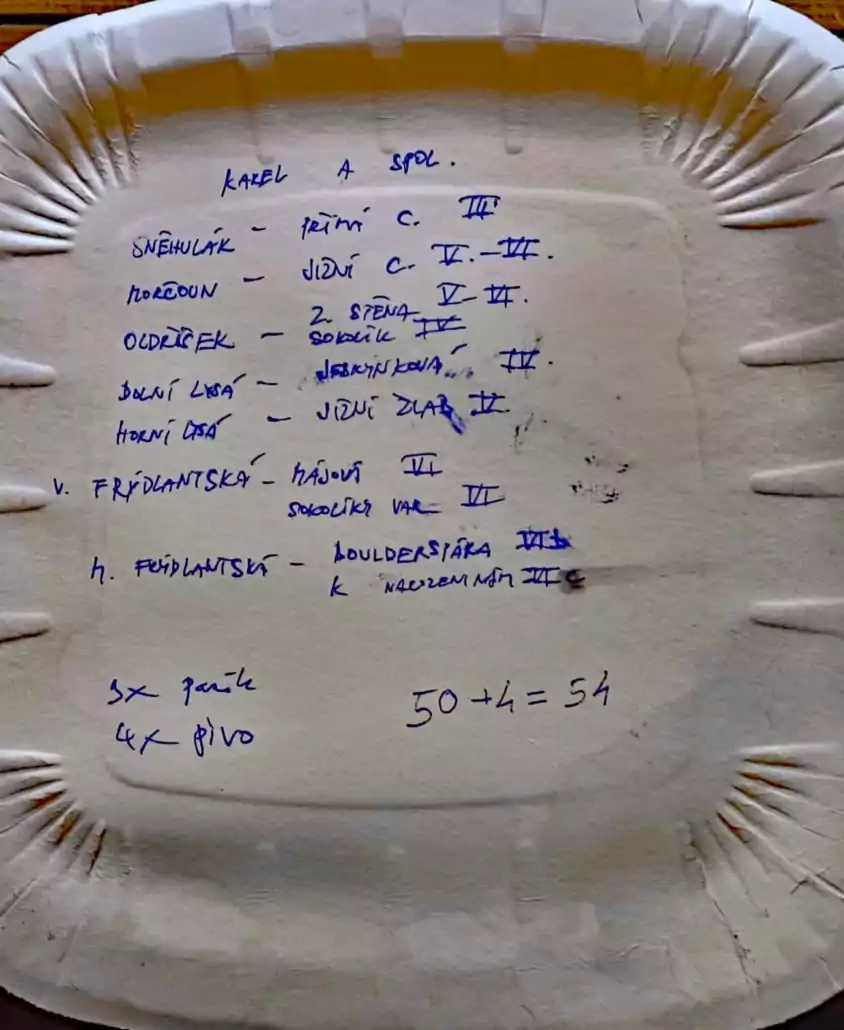 KAREL A SPOL.
SNĚHULÁK - PŘÍMÁ C. III
MORČOUN - JIŽNÍ C. V.-VI.
OLDŘÍŠEK - Z. STĚNA V-VI.
SOKOLÍK IV
DOLNÍ LYSÁ - JESKYŇKOVÁ IV.
HORNÍ LYSÁ - JIŽNÍ ŽLAB V.
V. FRÝDLANTSKÁ - MÁJOVÁ VI
SOKOLÍKY VAR VI
M. FRÝDLANTSKÁ - BOULDERSPÁRA VIb
K NAROZENINÁM VIc
3x párek
4x pivo
50+4=54